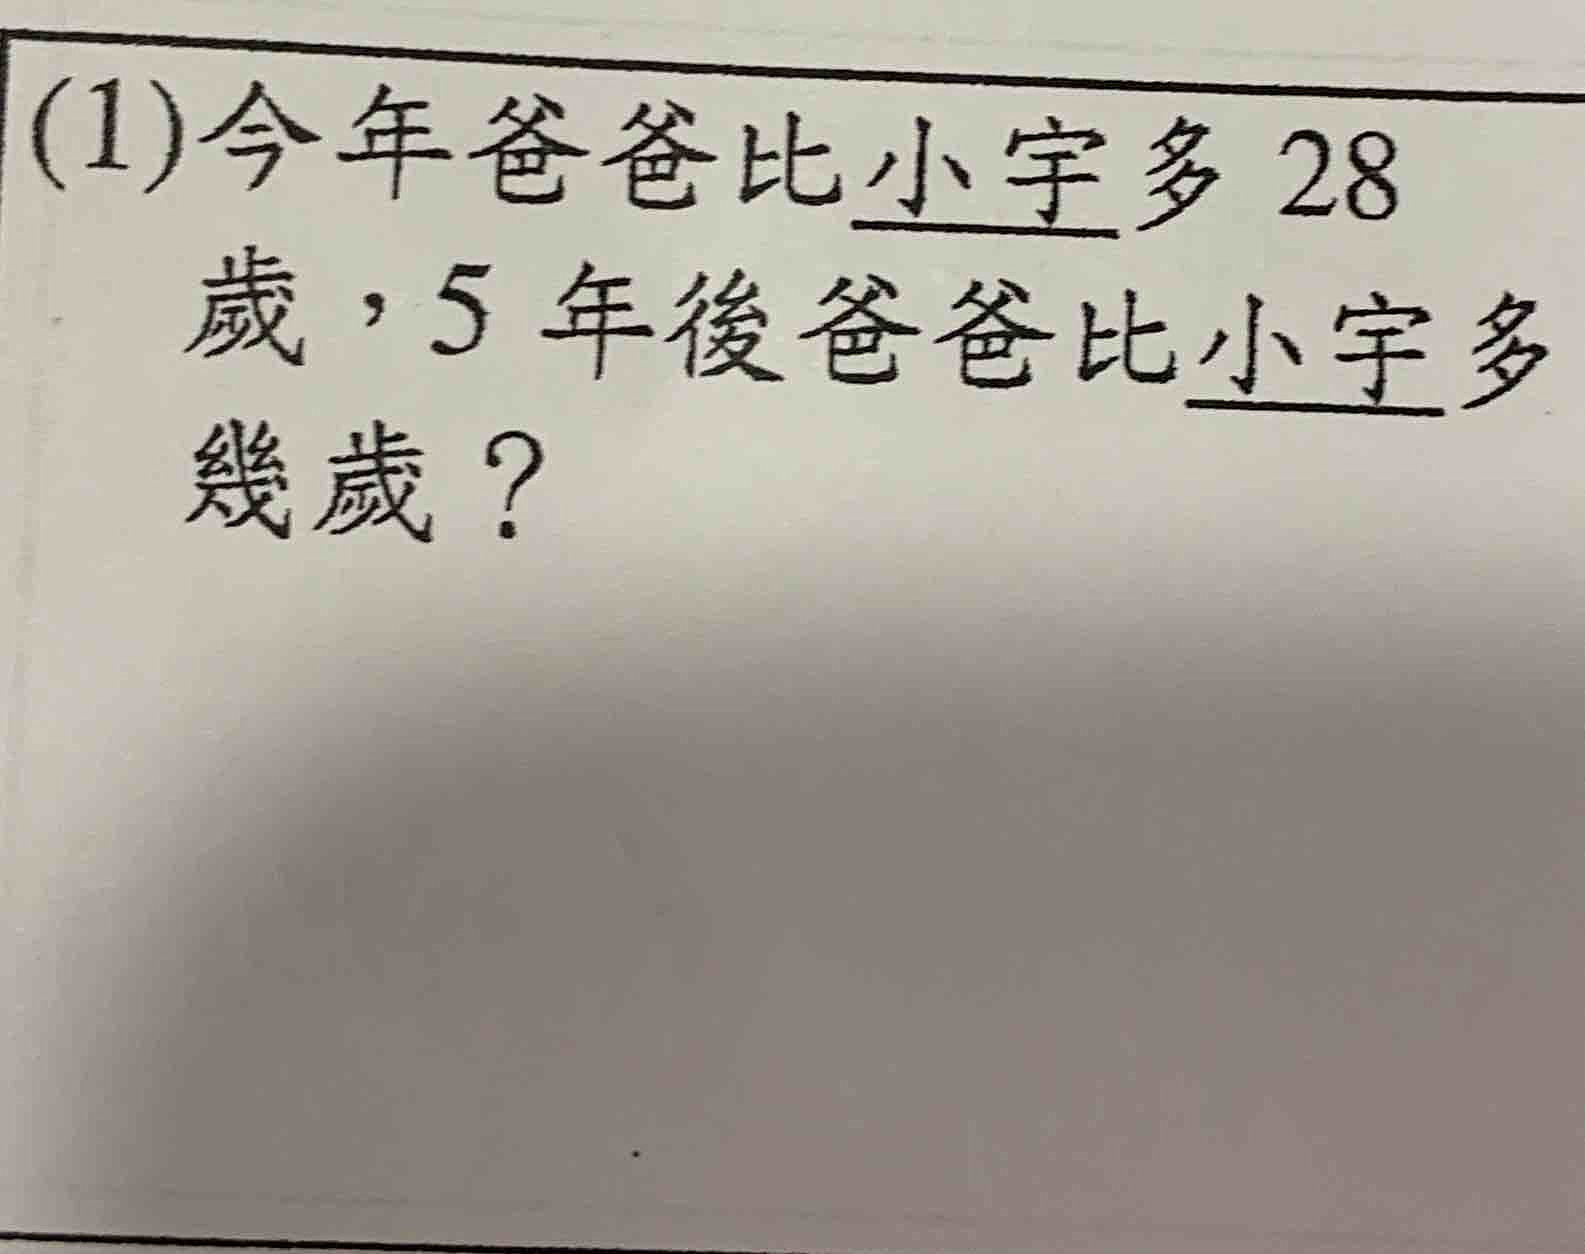 (1)今年爸爸比小宇多 28
歲，5 年後爸爸比小宇多
幾歲？